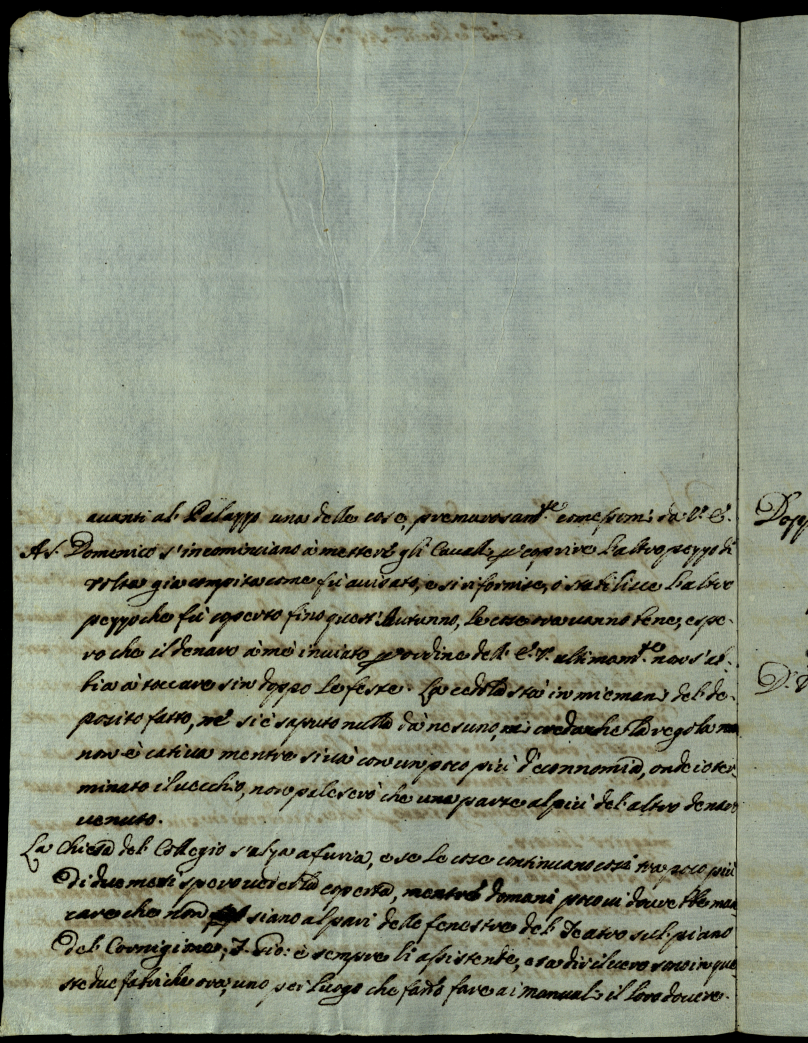 avanti al Palazzo una delle cose, premurosam.te com'è da V. E.
A S. Domenico s'incominciano à mettere gli Cavalli, p coprire l'altro pezzo di
volta già compita come fù avisato, e si rifornisce, ò stabilisce l'altro
pezzo che fù coperto fino quest'Autunno, le cose ora vanno bene, e spe-
ro che il denaro à me inviato p ordine dell'E. V. ultimam.te non s'ab-
bia à toccare sin doppo le feste. La cedola stà in mie mani del de-
posito fatto, nè si è saputo nulla da nesuno, mi creda che la regola
non è cativa mentre si và con un poco più d'economia, onde io ter-
minato il vecchio, non paleserò che una parte al più del altro denaro
venuto.
La Chiesa del Collegio s'alza a furia, e se le cose continuano così trà poco più
di due mesi spero vederla coperta, mentre domani poco vi dovrebbe man-
care che non siano al pari delle fenestre del Teatro sul piano
del Cornigione, S. Gio: è sempre lì assistente, e a dir il vero sono in que-
ste due fabriche ora, uno per luogo che fanno fare ai manuali il loro dovere.
Dopp